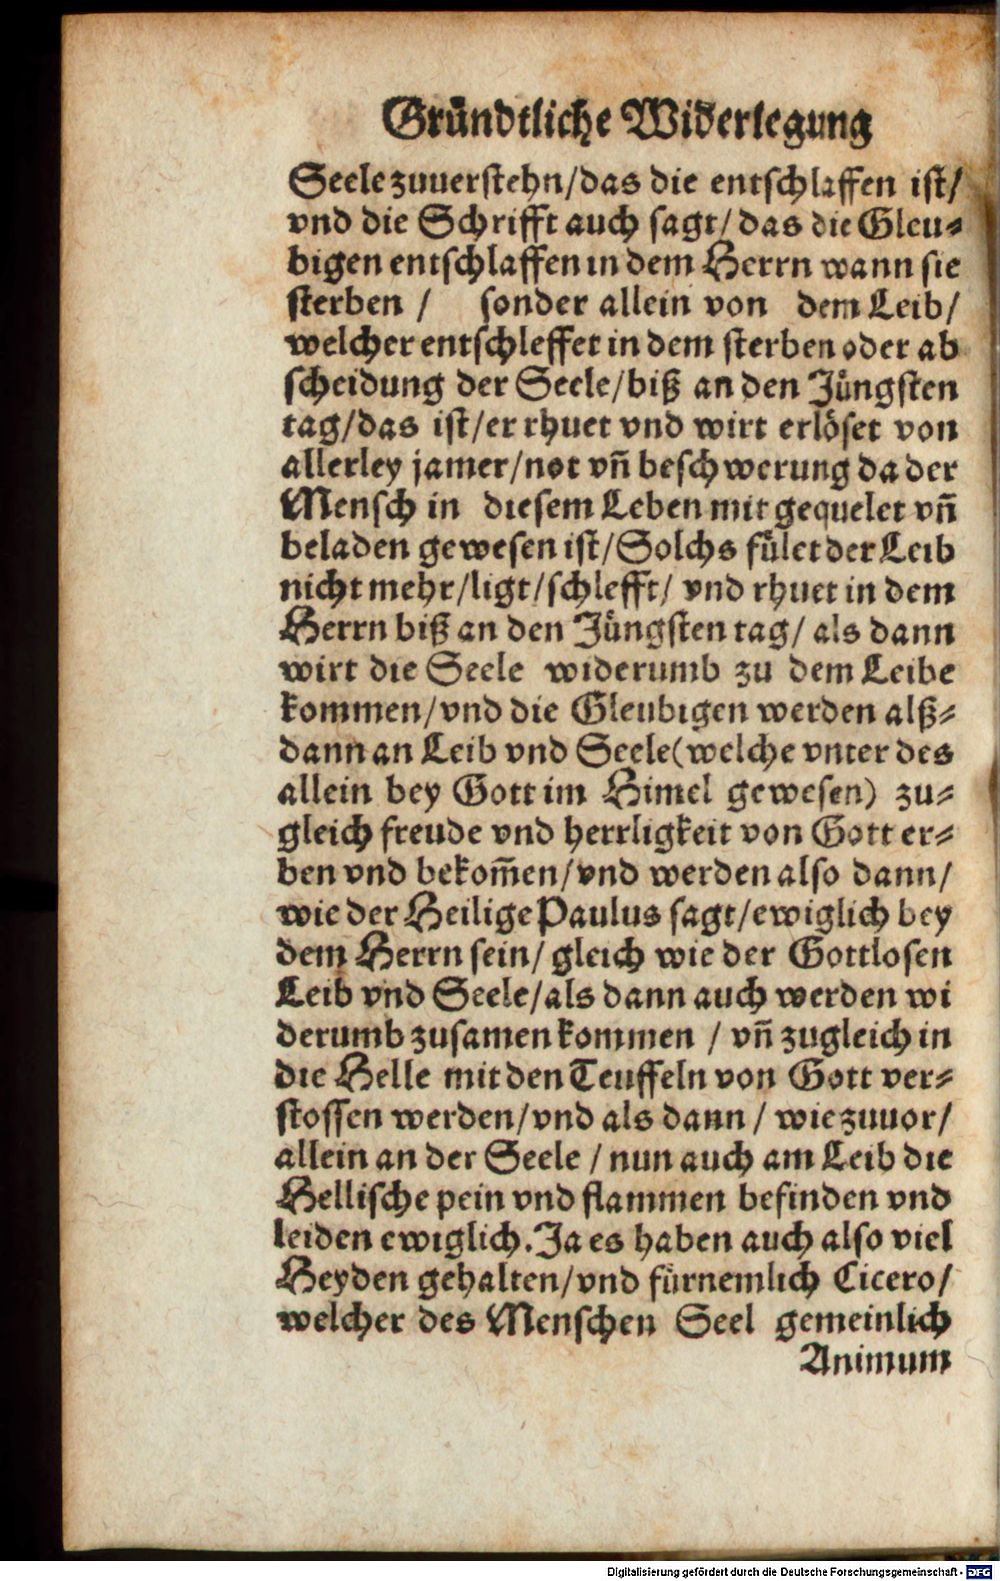 Gründtliche Widerlegung
Seele zuuerstehn/das die entschlaffen ist/
vnd die Schrifft auch sagt/das die Gleu⸗
bigen entschlaffen in dem Herrn wann sie
sterben / sonder allein von dem Leib/
welcher entschleffet in dem sterben oder ab
scheidung der Seele/biß an den Jüngsten
tag/das ist/er rhuet vnd wirt erlöset von
allerley jamer/not vn̄ beschwerung da der
Mensch in diesem Leben mit gequelet vn̄
beladen gewesen ist/Solchs fület der Leib
nicht mehr/ligt/schlefft/ vnd rhuet in dem
Herrn biß an den Jüngsten tag/ als dann
wirt die Seele widerumb zu dem Leibe
kommen/vnd die Gleubigen werden alß⸗
dann an Leib vnd Seele(welche vnter des
allein bey Gott im Himel gewesen) zu⸗
gleich freude vnd herrligkeit von Gott er⸗
ben vnd bekom̄en/vnd werden also dann/
wie der Heilige Paulus sagt/ewiglich bey
dem Herrn sein/ gleich wie der Gottlosen
Leib vnd Seele/als dann auch werden wi
derumb zusamen kommen / vn̄ zugleich in
die Helle mit den Teuffeln von Gott ver⸗
stossen werden/vnd als dann / wie zuuor/
allein an der Seele / nun auch am Leib die
Hellische pein vnd flammen befinden vnd
leiden ewiglich. Ja es haben auch also viel
Heyden gehalten/vnd fürnemlich Cicero/
welcher des Menschen Seel gemeinlich
Animum
Digitalisierung gefördert durch die Deutsche Forschungsgemeinschaft - DFG